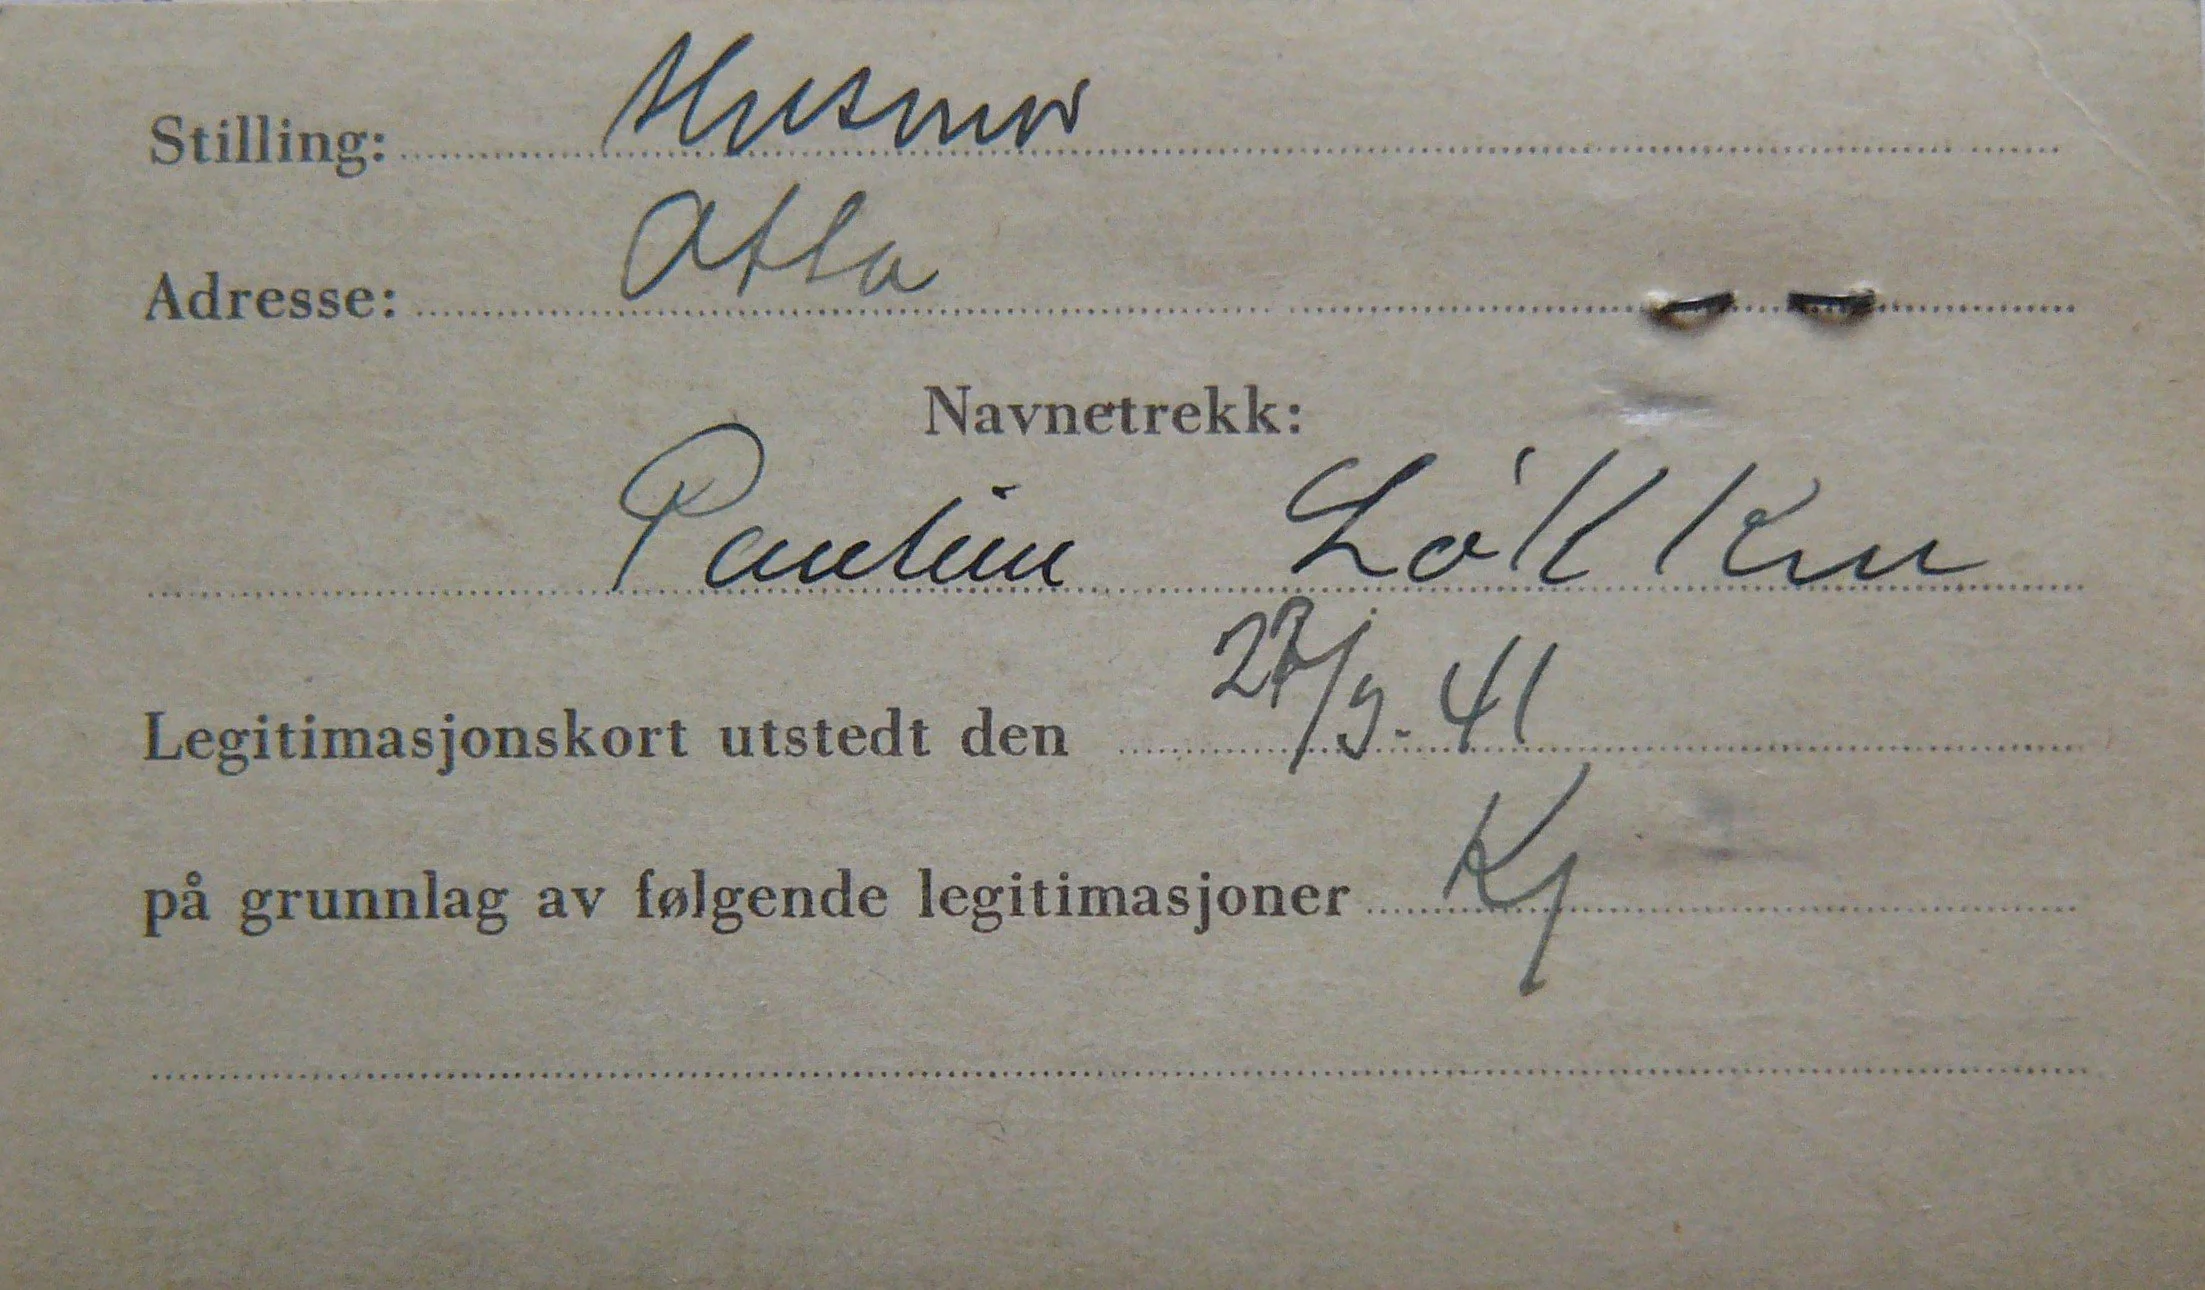 Stilling: Husmor
Adresse: Otta
Navnetrekk:
Pauline Løkken
Legitimasjonskort utstedt den 27/9-41
på grunnlag av følgende legitimasjoner Kj